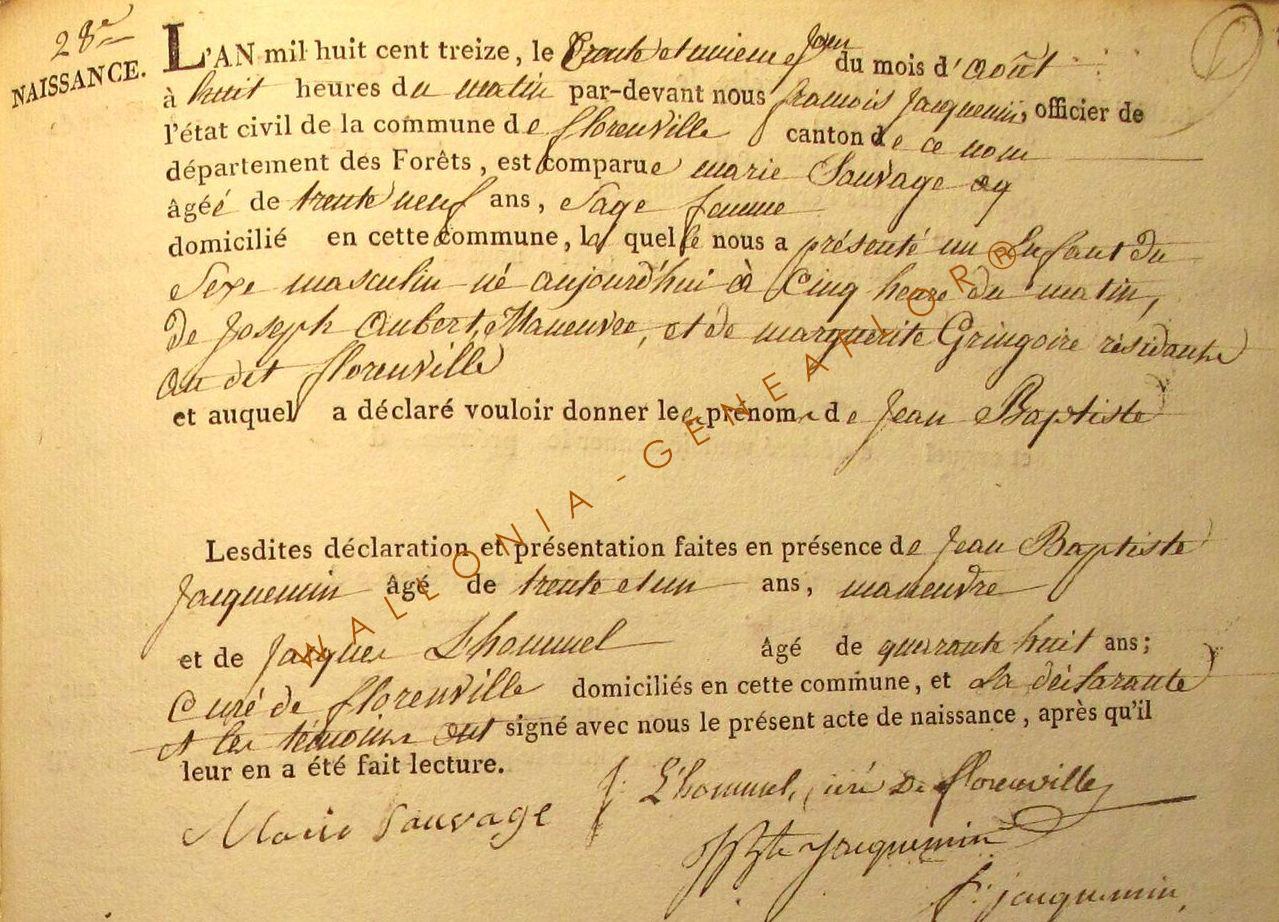 28e
NAISSANCE.
L'AN mil huit cent treize, le trente et unieme jour du mois d'août
à huit heures du matin par-devant nous francois Jacquemin, officier de
l'état civil de la commune de florenville canton de ce nom
département des Forêts, est comparue marie Sauvage
âgéé de trente neuf ans, Sage femme
domicilié en cette commune, la quelle nous a présenté un Enfant du
Sexe masculin né aujourd'hui à Cinq heure du matin,
de Joseph Aubert, Maneuvre, et de marguerite Gringoire résidante
au dit florenville
et auquel a déclaré vouloir donner le prénom de Jean Baptiste
Lesdites déclaration et présentation faites en présence de Jean Baptiste
Jacquemin âgé de trente et un ans, maneuvre
et de Jacques L'hommel âgé de quarante huit ans;
Curé de florenville domiciliés en cette commune, et la déclarante
et les témoins ont signé avec nous le présent acte de naissance, après qu'il
leur en a été fait lecture.
J. L'hommel, curé De florenville
Marie Sauvage
JBte Jacquemin
f. jacquemin,
WALLONIA - GENEALOR®